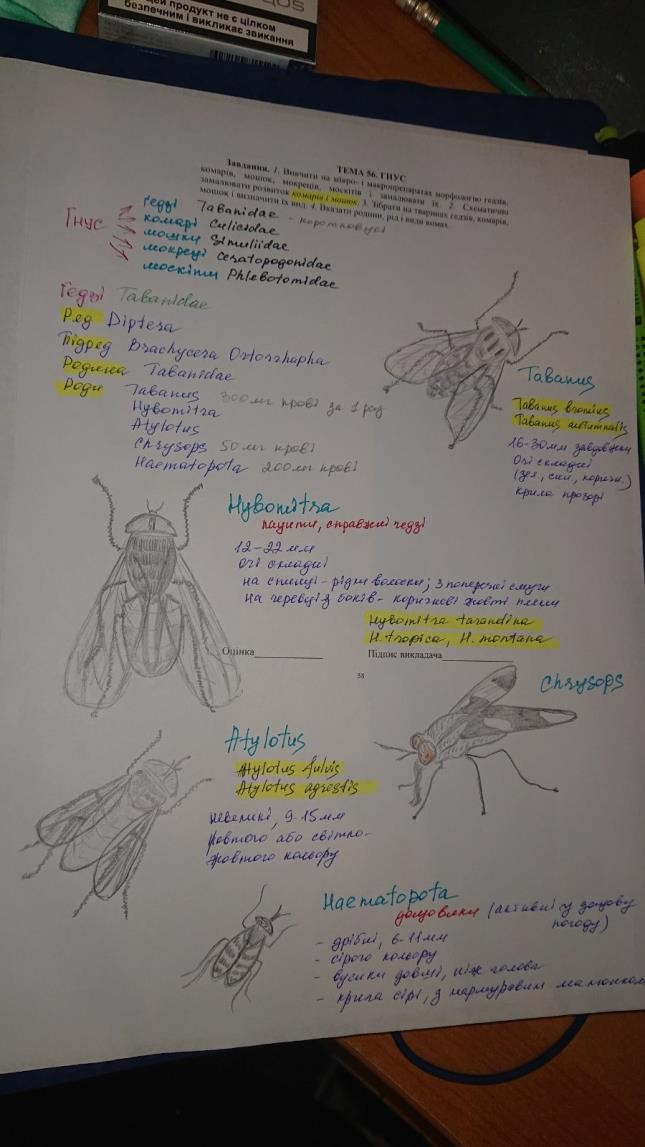 цей продукт не є цілком
безпечним і викликає звикання
ТЕМА 56. ГНУС
Завдання. 1. Вивчити на мікро- і макропрепаратах морфологію ґедзів,
комарів, мошок, мокреців, москітів і замалювати їх. 2. Схематично
замалювати розвиток комарів і мошок. 3. Зібрати на тваринах ґедзів, комарів,
мошок і визначити їх вид. 4. Вказати родини, рід і види комах.
Гнус
ґедзі Tabanidae - коротковусі
комарі Culicidae
мошки Simuliidae
мокреці Ceratopogonidae
москіти Phlebotomidae
Ґедзі Tabanidae
Ряд Diptera
Підряд Brachycera Ortorrhapha
Родина Tabanidae
Роди Tabanus 300 мг крові за 1 раз
Hybomitra
Atylotus
Chrysops 50 мг крові
Haematopota 200 мг крові
Tabanus
Tabanus bromius
Tabanus autumnalis
16-30 мм завдовжки
Очі складні
(зел., син., коричн.)
крила прозорі
Hybomitra
пацити, справжні ґедзі
12-22 мм
Очі складні
на спинці - рідкі волоски; 3 поперечні смуги
на черевці з боків - коричнові жовті плями
Hybomitra tarandina
H. tropica, H. montana
Оцінка Підпис викладача
58
Chrysops
Atylotus
Atylotus fulvis
Atylotus agrestis
невеликі, 9-15 мм
жовтого або світло-
жовтого кольору
Haematopota
дощовики (активні у дощову
погоду)
- дрібні, 6-11 мм
- сірого кольору
- вусики довші, ніж голова
- крила сірі, з мармуровим малюнком